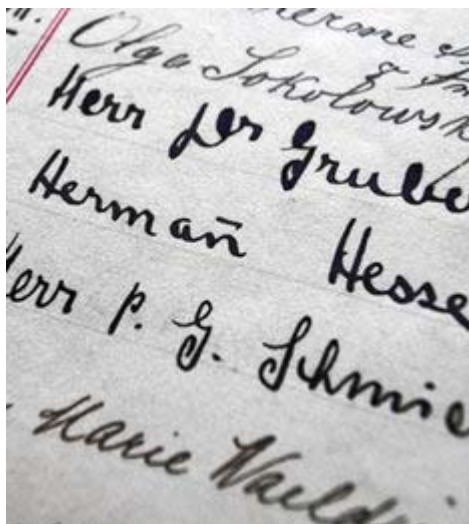 Olga Sokolowsk
Herr Grube
Hermañ Hesse
Herr P. G. Schmie
Marie